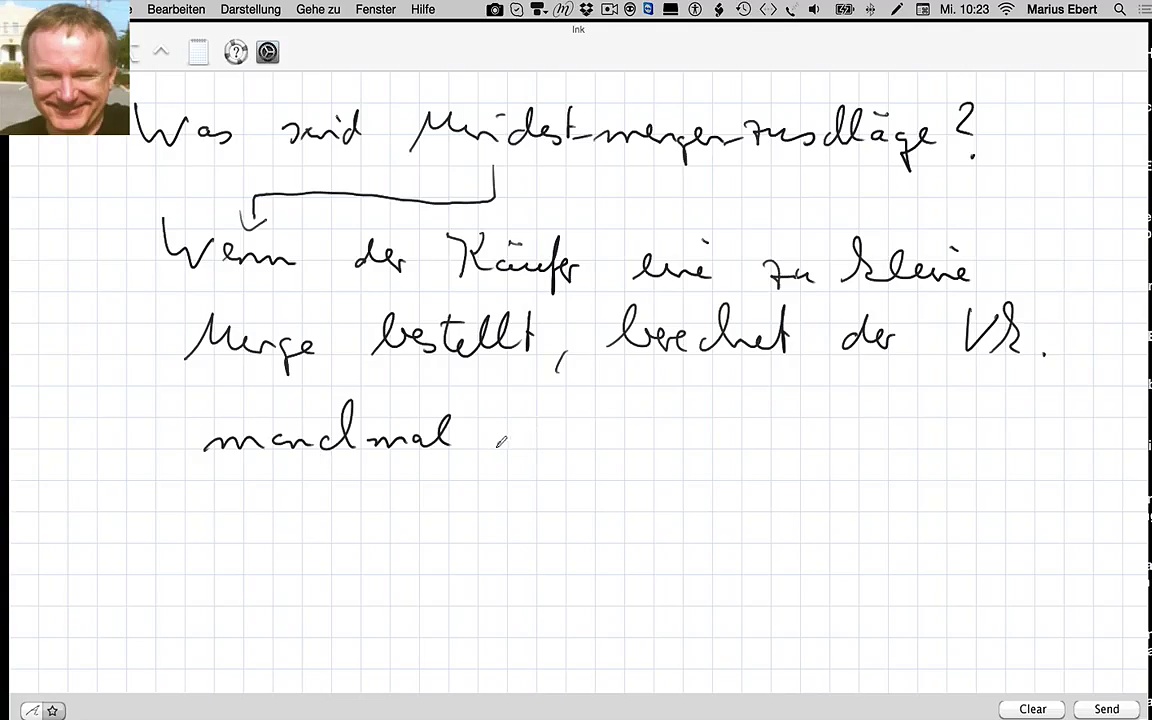 Bearbeiten Darstellung Gehe zu Fenster Hilfe Mi. 10:23 Marius Ebert
Ink
Was sind Mindest-mengen-zuschläge?
Wenn der Käufer eine zu kleine
Menge bestellt, berechnet der Vk.
manchmal
Clear Send